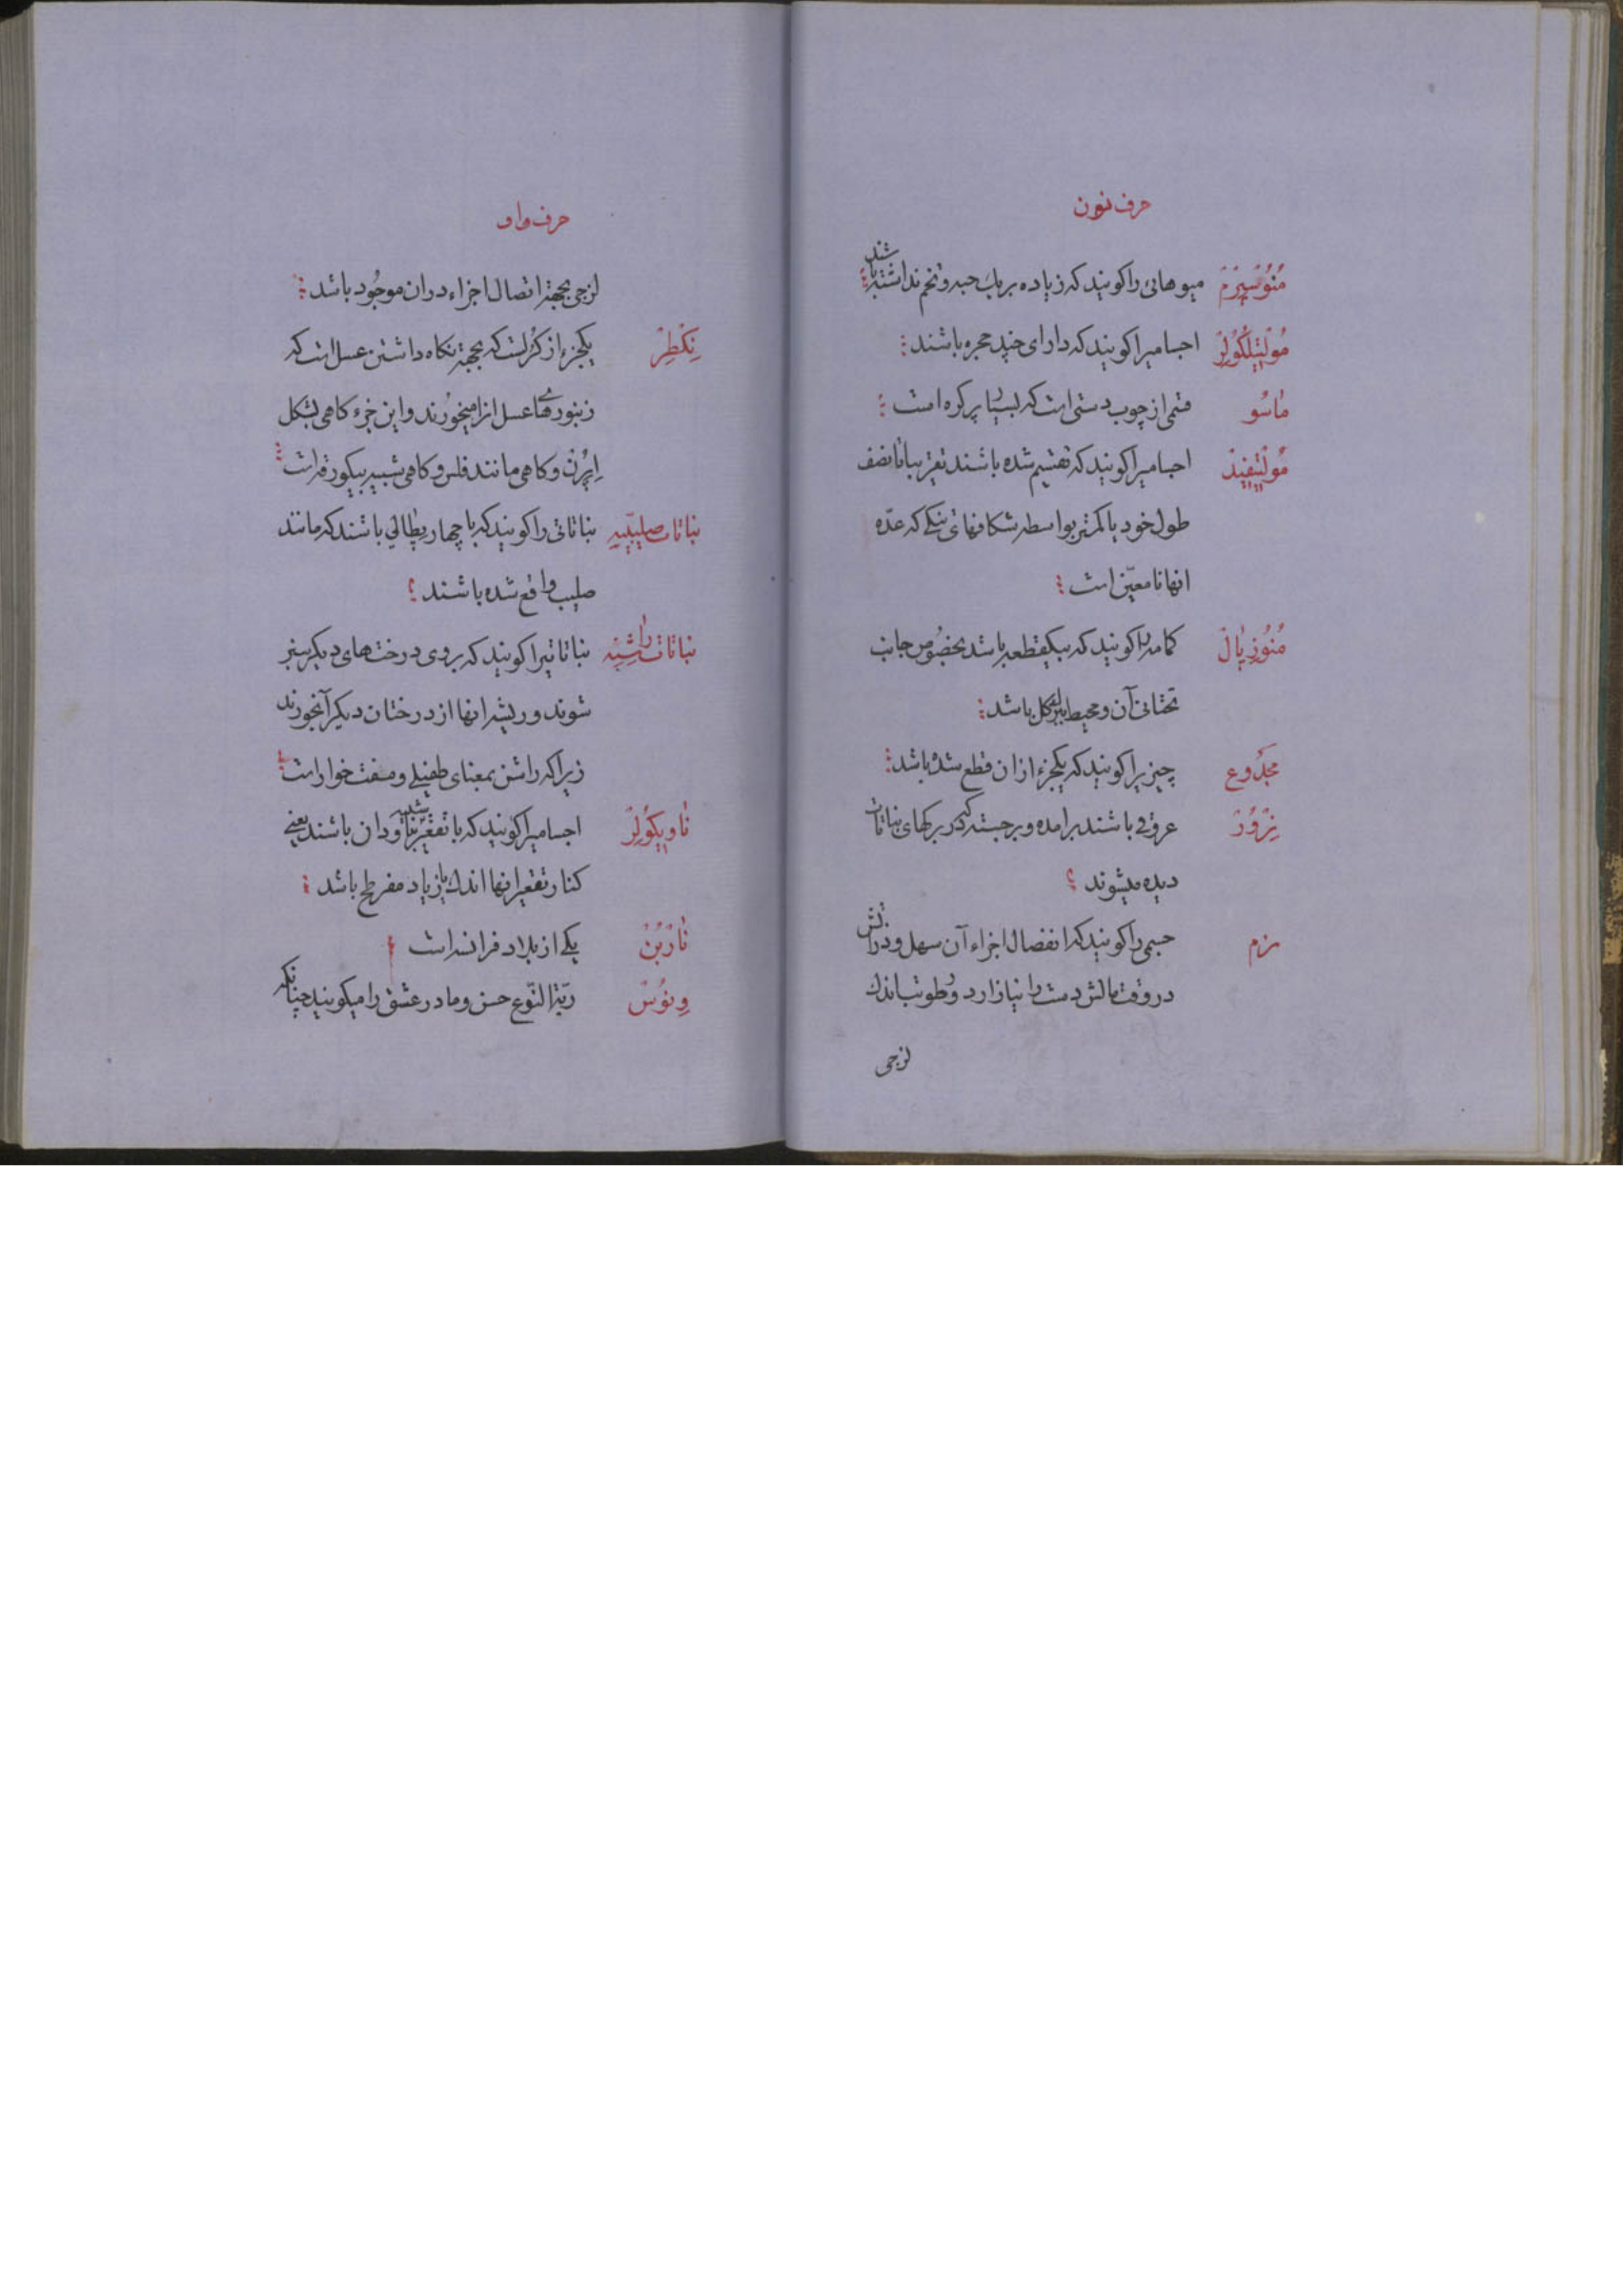 حرف نون
مُنُوسپِرْم میوهائی را کویند که زیاده بر یك حبه و تخم نداشته باشند
مُولْتِیلُکُولِرْ اجسامیرا کویند که دارای چند حجره باشند
مٰاسُو قسمی از چوب دستی است که بسیار پر کره است
مُولْتِیفِیدْ اجسامیرا کویند که تقسیم شده باشند تقریبا تا نصف
طول خود یا کمتر بواسطه شکافهای تنکی که عدّه
انها نامعیّن است
مُنُوزِپٰالْ کاسهٔ را کویند که یکقطعه باشد بخصُوص جانب
تحتانی آن و محیط ببزله کل باشد
مجدُوع چیزیرا کویند که یکجزء از ان قطع شده باشد
نِرْوُرْ عروقی باشند برامده و برجسته که در برکهای نباتات
دیده میشوند
نرم جسمی را کویند که انفصال اجزاء آن سهل و ذراتش
در وقت مالش دست را نیازارد و رطوبت اندك
لزجی
حرف واو
لزجی بجهة اتصال اجزاء در ان موجُود باشد
نِکْطِرْ یکجزء از کُرُلست که بجهة نکاه داشتن عسل است که
زنبورهای عسل از ا میخورند و این جزء کاهی بشکل
اِپُرُنْ و کاهی مانند فلس و کاهی شبیه بیکورقه است
نباتات صلیبّییه نباتاتی را کویند که با چهار پِطٰالی باشند که مانند
صلیب واقع شده باشند
نباتات راشنیّه نباتاتیرا کویند که بروی درخت های دیکر سبز
شوند و ریشه انها از درختان دیکر آبخورند
زیرا که راشن بمعنای طفیلی و مفت خوار است
نٰاوِیکُولِرْ اجسامیرا کویند که با تقعّر شبیه بناودان باشند یعنی
کنار تقعیر انها اندك یا زیاد مفرطح باشد
نٰارْبُنْ یکی از بلاد فرانسه است
وِنُوسْ ربّة النّوع حسن و مادر عشق را میکویند چنانکه